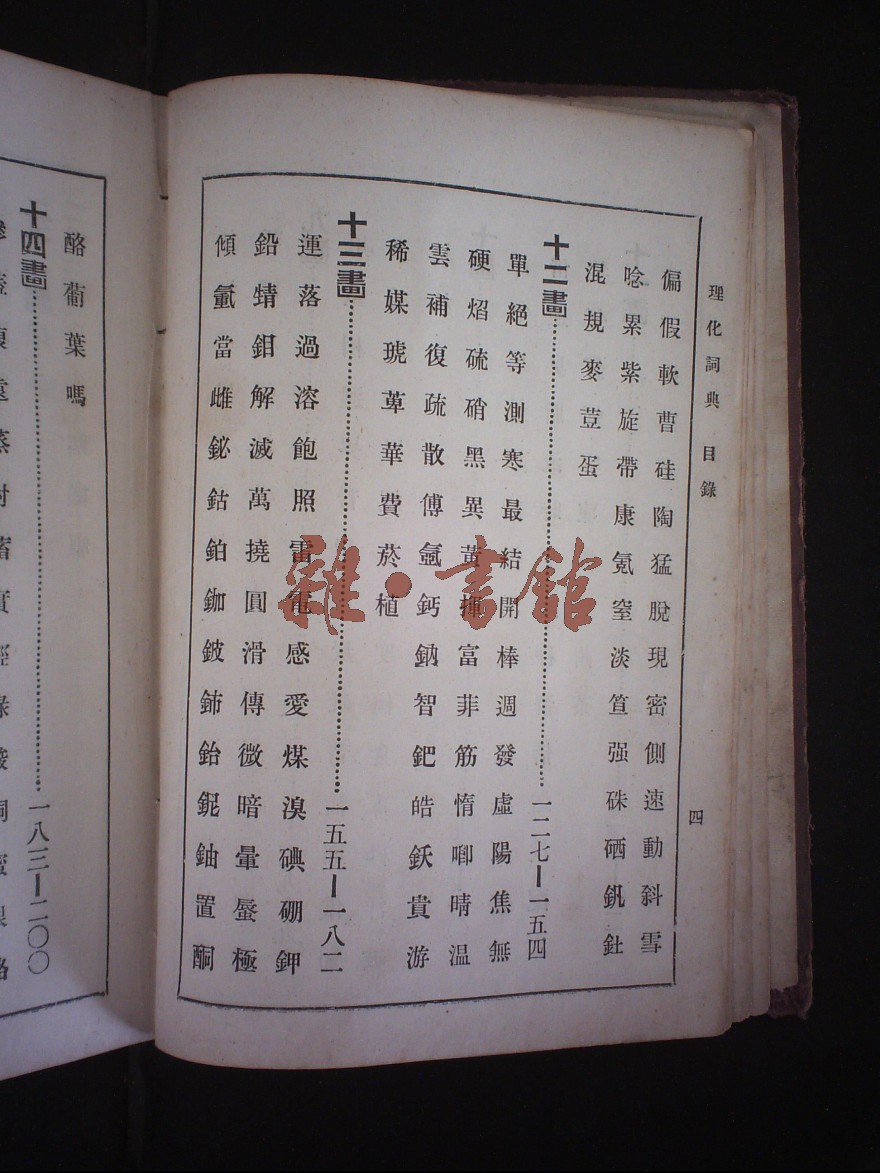 理化詞典 目錄
四
偏假軟曹硅陶猛脫現密側速動斜雪
唸累紫旋帶康氪窒淡笪强硃硒釩釷
混規麥荳蛋
十二畫……一二七—一五四
單絕等測寒最結開棒週發虛陽焦無
硬焰硫硝黑異黃揮富菲筋惰喞晴温
雲補復疏散傅氬鈣鈉智鈀皓鈥貴游
稀媒琥萆華費菸植
十三畫……一五五—一八二
運落過溶飽照雷電感愛煤溴碘硼鉀
鉛蜻鉬解滅萬撓圓滑傳微暗暈蜃極
傾氭當雌鉍鈷鉑鉫鈹鈽鈶鈮鈾置酮
酪葡葉嗎
十四畫……一八三—二〇〇
雜·書館